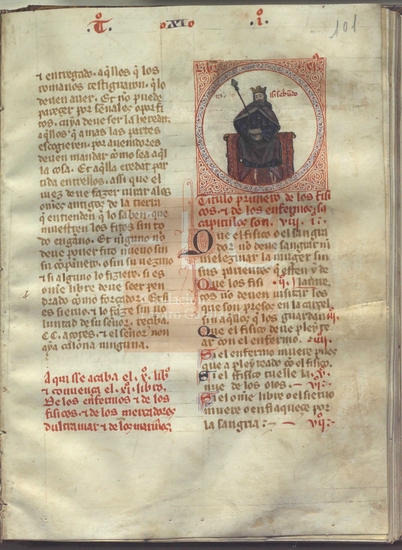 .T. .XI. .i. 101
⁊ entregado. aq̃llos q̃ los
romanos testiguaron. q̃ lo
deuen auer. Et no puede
pareçer por señales o por fi
tos, cuya deue ser la heredat.
aq̃llos q̃ amas las partes
escogieren. por auenidores
deuen mandar cõmo sea aq̃l
la cosa. Et aq̃lla eredat par
tida entrellos. assi que el
iuez deue fazer iurar a los
om̃es antigos de la tierra
q̃ entienden q̃ lo saben. que
muestren los fitos sin to
do enganno. Et ninguno no
deue poner fito nueuo sin
su conpanero. o sin su iuezino
⁊ si alguno lo fiziere. si es
om̃e libre deue seer pen
drado cõmo forçador. Et si
es sieruo. ⁊ lo fizo sin uo
luntad de su señor. reçiba.
CC. açotes. ⁊ el señor non
aya calonna ninguna.
Aqui se acaba el .xº. libº.
⁊ comiença el .xiº. libro.
De los enfermos ⁊ de los
fisicos. ⁊ de los mercadores
dultramar ⁊ de los marinos.
Titulo primero de los fisi
cos. ⁊ de los enfermos.
capitulos son. viij. i.
Que el fisico o el sangra
dor no deue sangrar ni
melezinar la mugier sin
sus parientes q̃ esten y de
Que los fisi .ij.
cos no deuen uisitar los
que son presos en la carçel
sin aq̃llos q̃ los guardan. iij.
Que el fisico deue pleyte
ar con el enfermo. iiij.
Si el enfermo muere pues
que a pleyteado cõ el fisico.
Si el fisico tuelle la
nuue de los oios. vi.
Si el om̃e libre o el sieruo
muere o enflaqueçe por
la sangria. vij.